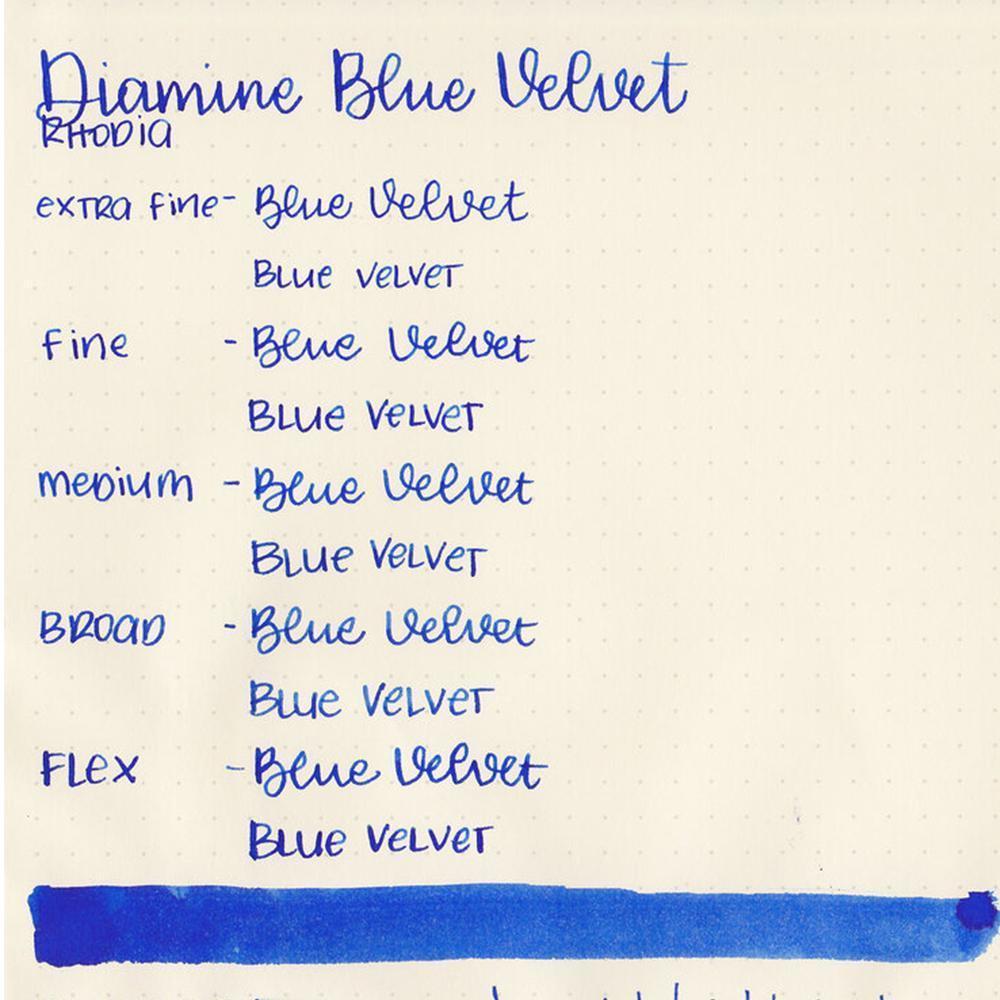 Diamine Blue Velvet
RHODIA
extra fine - Blue Velvet
Blue Velvet
fine - Blue Velvet
Blue Velvet
medium - Blue Velvet
Blue Velvet
Broad - Blue Velvet
Blue Velvet
Flex - Blue Velvet
Blue Velvet